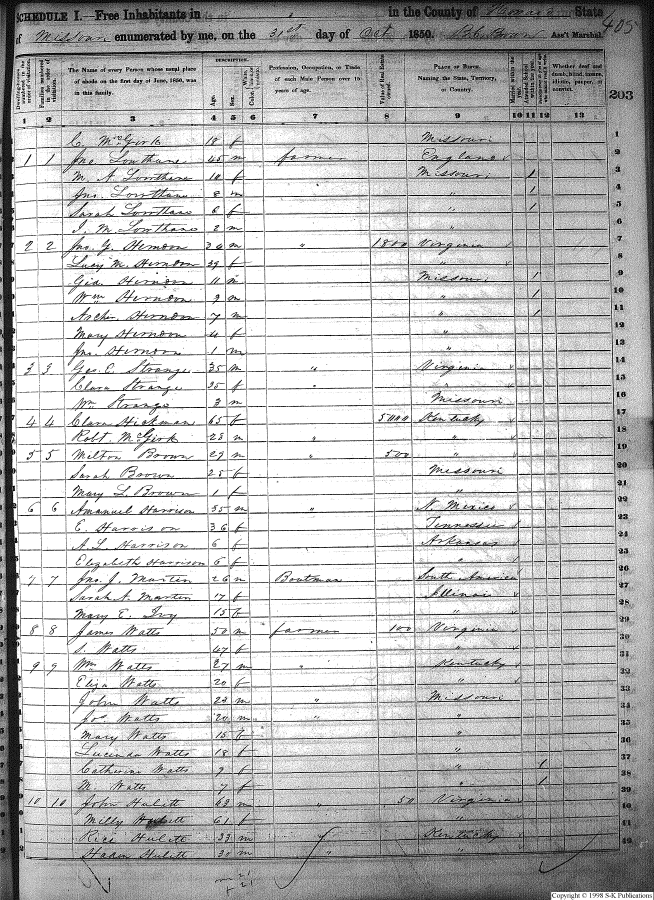 SCHEDULE I.—Free Inhabitants in in the County of Howard State 405
of Missouri enumerated by me, on the 31st day of Oct 1850. Ass't Marshal.
203
Dwelling-houses numbered in the order of visitation.
Families numbered in the order of visitation.
The Name of every Person whose usual place of abode on the first day of June, 1850, was in this family.
DESCRIPTION.
Age.
Sex.
Color.
Profession, Occupation, or Trade of each Male Person over 15 years of age.
Value of Real Estate owned.
PLACE OF BIRTH. Naming the State, Territory, or Country.
Married within the year.
Attended School within the year.
Whether deaf and dumb, blind, insane, idiotic, pauper, or convict.
1 2 3 4 5 6 7 8 9 10 11 12 13
C. McGirk 18 f Missouri 1
1 1 Jno. Lowthane 45 m farmer England 2
M. A. Lowthane 10 f Missouri 1 3
Jno. Lowthane 8 m " 1 4
Sarah Lowthane 6 f " 1 5
J. M. Lowthane 2 m " 6
2 2 Jno. G. Herndon 34 m " 1800 Virginia 7
Lucy M. Herndon 29 f " 8
Geo. Herndon 11 m Missouri 1 9
Wm Herndon 9 m " 1 10
Archr. Herndon 7 m " 1 11
Mary Herndon 4 f " 12
Jno. Herndon 1 m " 13
3 3 Geo. E. Strange 35 m " Virginia 14
Clara Strange 25 f " 15
Wm Strange 3 m Missouri 16
4 4 Clara Hickman 65 f 5000 Kentucky 17
Robt. McGirk 23 m " " 18
5 5 Milton Brown 29 m " 500 " 19
Sarah Brown 25 f Missouri 20
Mary L. Brown 1 f " 21
6 6 Amanuel Harrison 55 m " N. Mexico 22
E. Harrison 36 f Tennessee 23
A. L. Harrison 6 f Arkansas 24
Elizabeth Harrison 6 f " 25
7 7 Jno. J. Marten 26 m Boatman South America 26
Sarah A. Marten 17 f Illinois 27
Mary E. Ivy 15 f " 28
8 8 James Watts 50 m farmer 100 Virginia 29
S. Watts 47 f " 30
9 9 Wm Watts 27 m " Kentucky
Eliza Watts 20 f " 32
John Watts 23 m " Missouri 33
Jos Watts 20 m " " 34
Mary Watts 15 f " 35
Lucinda Watts 18 f " 36
Catherine Watts 9 f " 1
M. Watts 7 f " 1 38
10 10 John Hulett 62 m " 50 Virginia 39
Milly Hulett 61 f " 40
Rice Hulett 33 m " Kentucky 41
Hulett 30 m " "
m 21
f 21
Copyright © 1998 S-K Publications